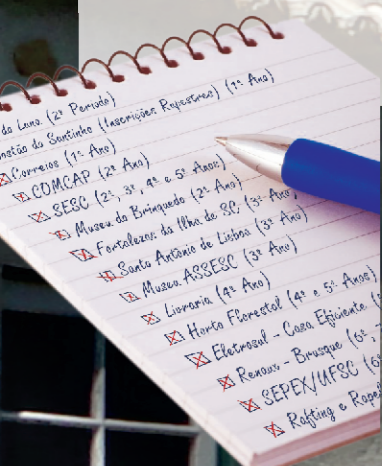 da Lama (2º Período)
Costão do Santinho (Inscrições Rupestres) (1º Ano)
Correios (1º Ano)
COMCAP (2º Ano)
SESC (2º, 3º, 4º e 5º Anos)
Museu do Brinquedo (2º Ano)
Fortalezas da Ilha de SC (3º Ano)
Santo Antônio de Lisboa (3º Ano)
Museu ASSESC (3º Ano)
Livraria (4º Ano)
Horto Florestal (4º e 5º Anos)
Eletrosul - Casa Eficiente (
Renaux - Brusque (6º,
SEPEX/UFSC (6º
Rafting e Rapel